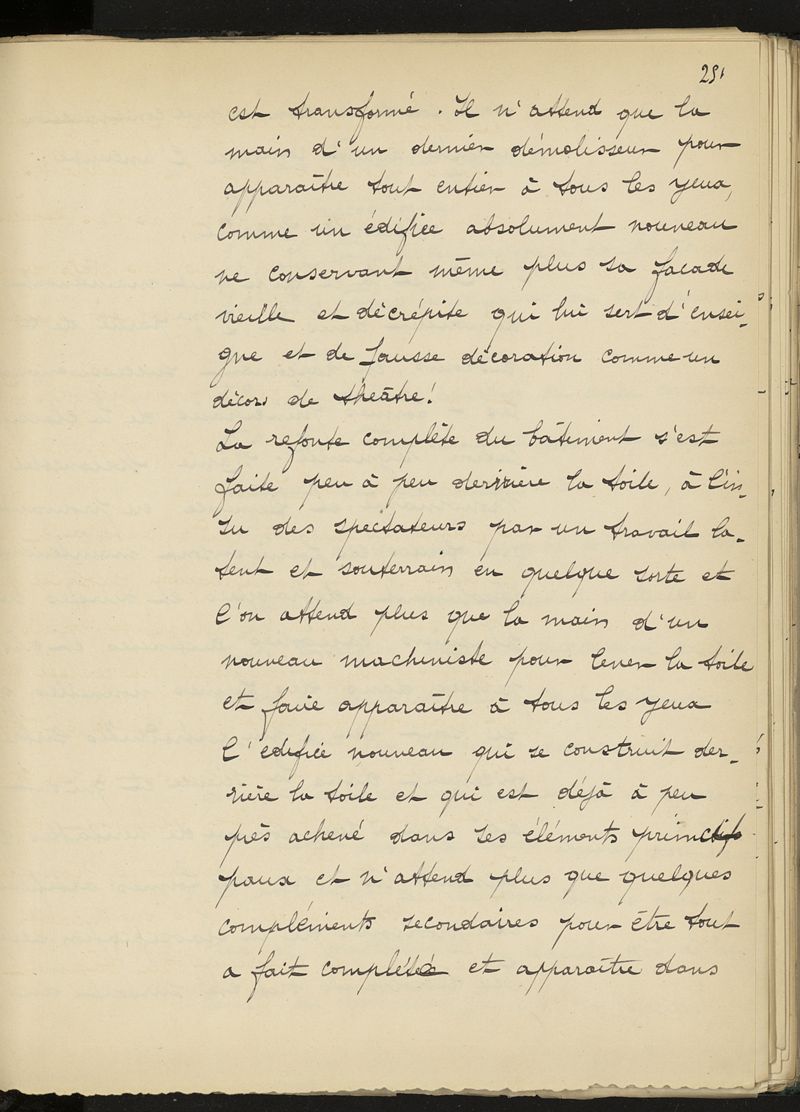 251
est transformé. Il n'attend que la
main d'un dernier démolisseur pour
apparaître tout entier à tous les yeux,
comme un édifice absolument nouveau
ne conservant même plus sa façade
vieille et décrépite qui lui sert d'ensei-
gne et de fausse décoration comme un
décors de théâtre!
La refonte complète du bâtiment s'est
faite peu à peu derrière la toile, à l'in-
su des spectateurs par un travail la-
tent et souterrain en quelque sorte et
l'on attend plus que la main d'un
nouveau machiniste pour lever la toile
et faire apparaître à tous les yeux
l'édifice nouveau qui se construit der-
rière la toile et qui est déjà à peu
près achevé dans ses éléments princi
paux et n'attend plus que quelques
compléments secondaires pour être tout
a fait complété et apparaître dans